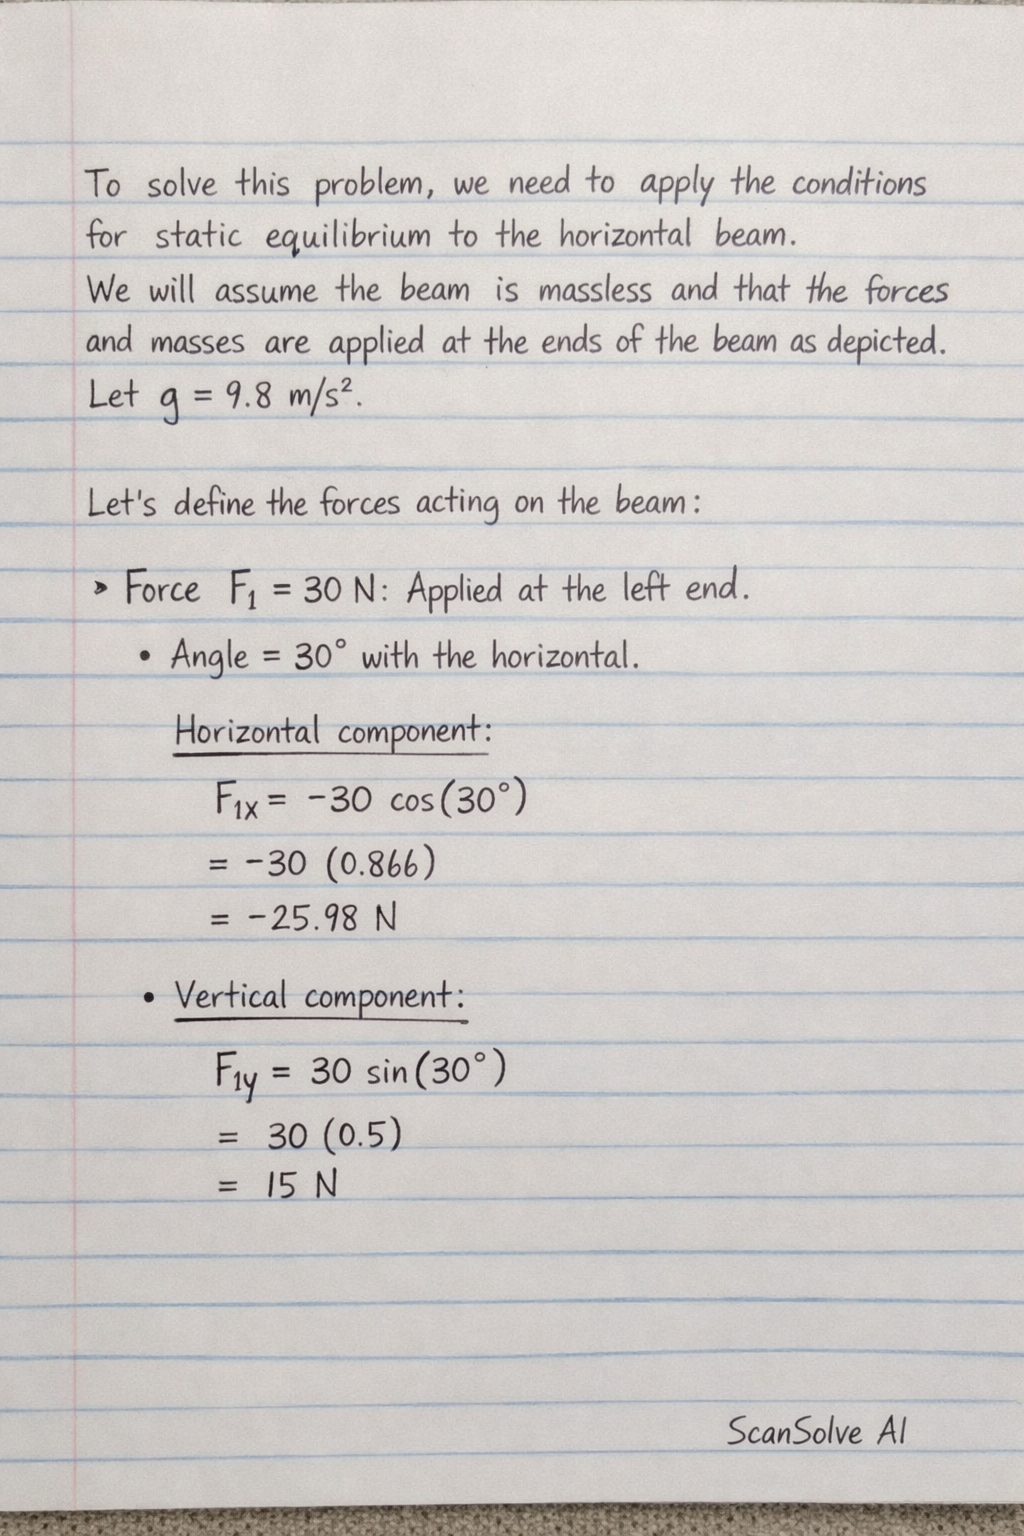 To solve this problem, we need to apply the conditions
for static equilibrium to the horizontal beam.
We will assume the beam is massless and that the forces
and masses are applied at the ends of the beam as depicted.
Let g = 9.8 m/s².
Let's define the forces acting on the beam:
➤ Force F₁ = 30 N: Applied at the left end.
• Angle = 30° with the horizontal.
Horizontal component:
F₁ₓ = -30 cos(30°)
= -30 (0.866)
= -25.98 N
• Vertical component:
F₁y = 30 sin(30°)
= 30 (0.5)
= 15 N
ScanSolve AI